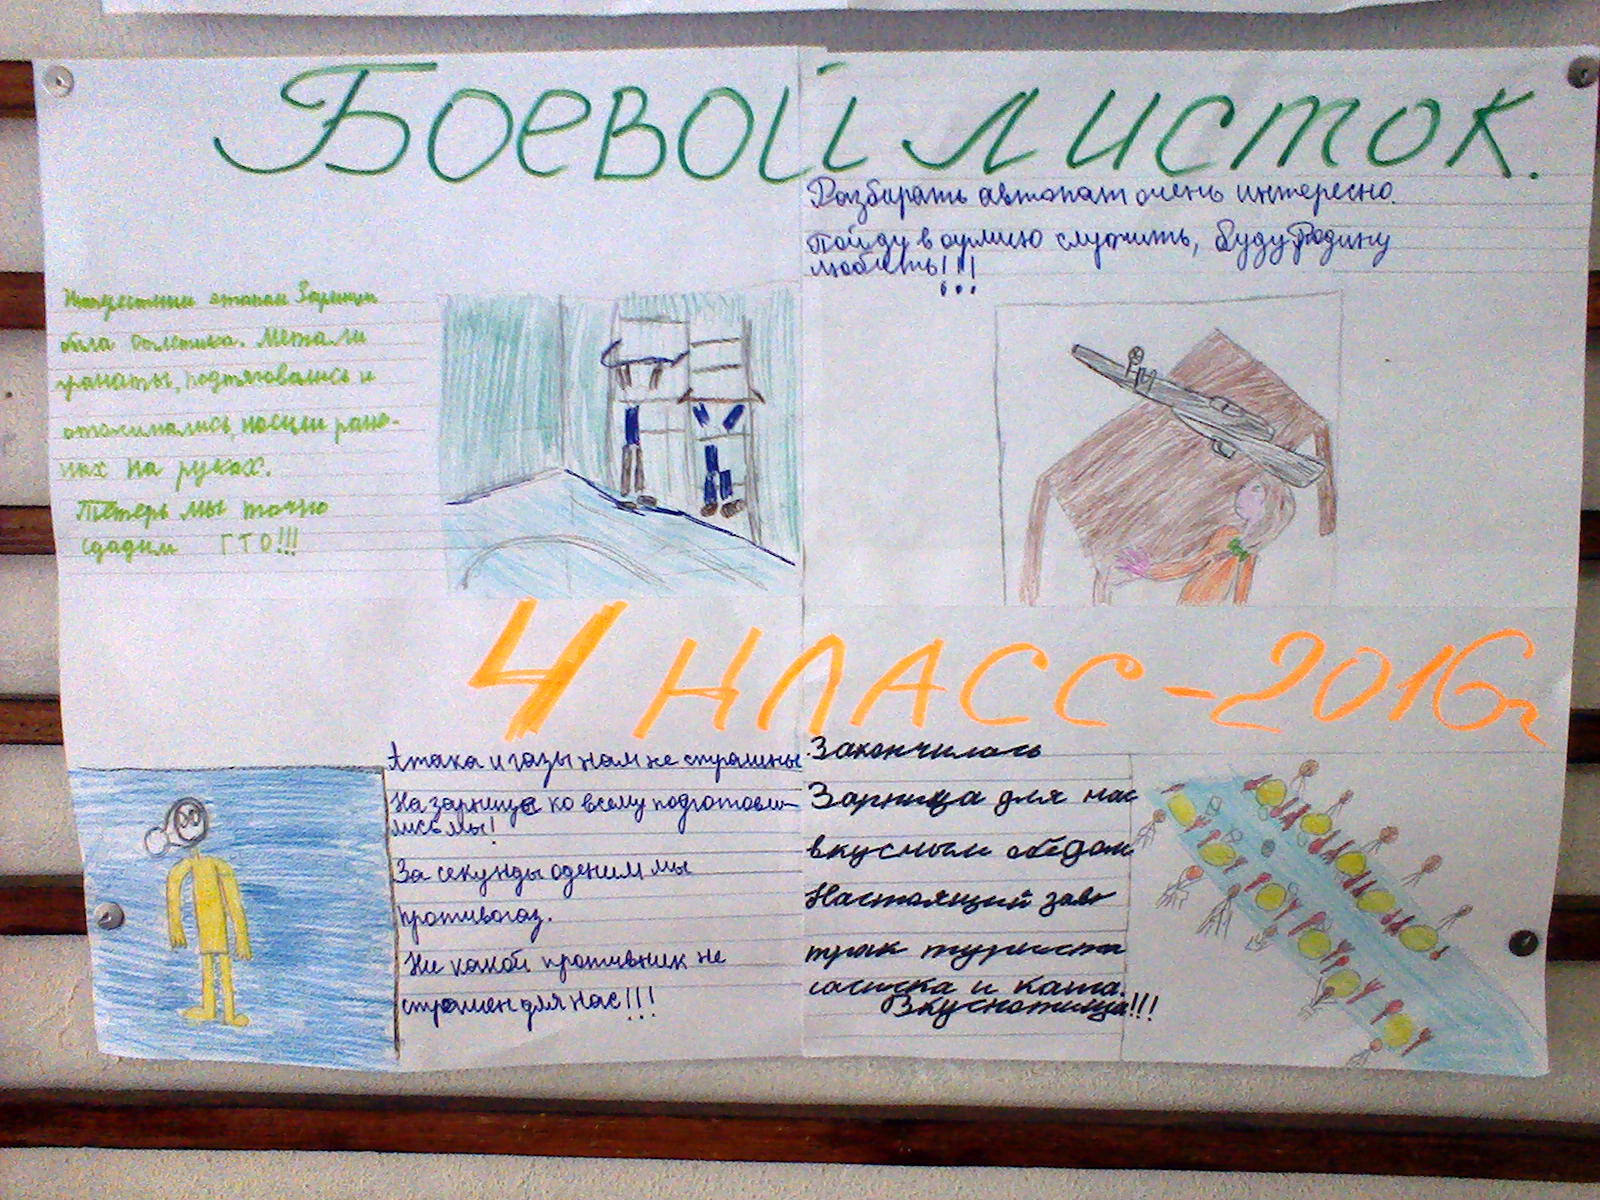 Боевой листок.
Разбирать автомат очень интересно.
Пойду в армию служить, буду Родину
любить!!!
этапом Зарницы
была атлетика. Метали
гранаты, подтягивались и
отжимались, носили ране-
ных на руках.
Теперь мы точно
сдадим ГТО!!!
4 класс-2016г
Атака и газы нам не страшны
На зарнице ко всему подготови-
лись мы!
За секунды оденим мы
противогаз.
Ни какой противник не
страшен для нас!!!
Закончилась
Зарница для нас
вкусным обедом
Настоящий зав-
трак туриста
сосиска и каша.
Вкуснотища!!!